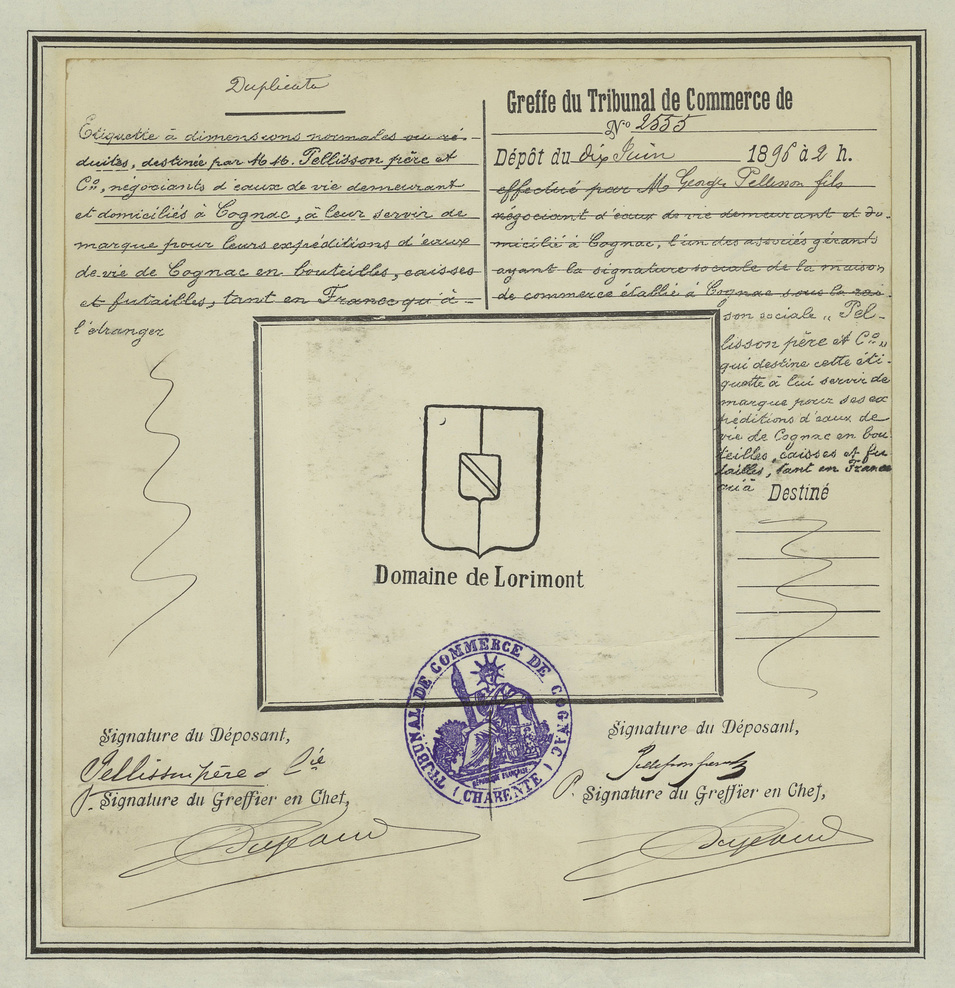 Duplicata
Etiquette à dimensions normales ou ré-
duites, destinée par M.M. Pellisson père et
Co, négociants d'eaux de vie demeurant
et domiciliés à Cognac, à leur servir de
marque pour leurs expéditions d'eaux
de vie de Cognac en bouteilles, caisses
et futailles, tant en France qu'à
l'étranger
Greffe du Tribunal de Commerce de
No 2555
Dépôt du dix Juin 1896 à 2 h.
effectué par M Georges Pellisson fils
négociant d'eaux de vie demeurant et do-
micilié à Cognac, l'un des associés gérants
ayant la signature sociale de la maison
de commerce établie à Cognac sous la rai-
son sociale „ Pel-
lisson père et Co „
qui destine cette éti-
quette à lui servir de
marque pour ses ex
péditions d'eaux de
vie de Cognac en bou
teilles, caisses et fu
tailles, tant en France
qu'à
Destiné
Domaine de Lorimont
TRIBUNAL DE COMMERCE DE COGNAC
RÉPUBLIQUE FRANÇAISE
(CHARENTE)
Signature du Déposant,
Pellisson père & Cie
P. Signature du Greffier en Chef,
Signature du Déposant,
P. Signature du Greffier en Chef,